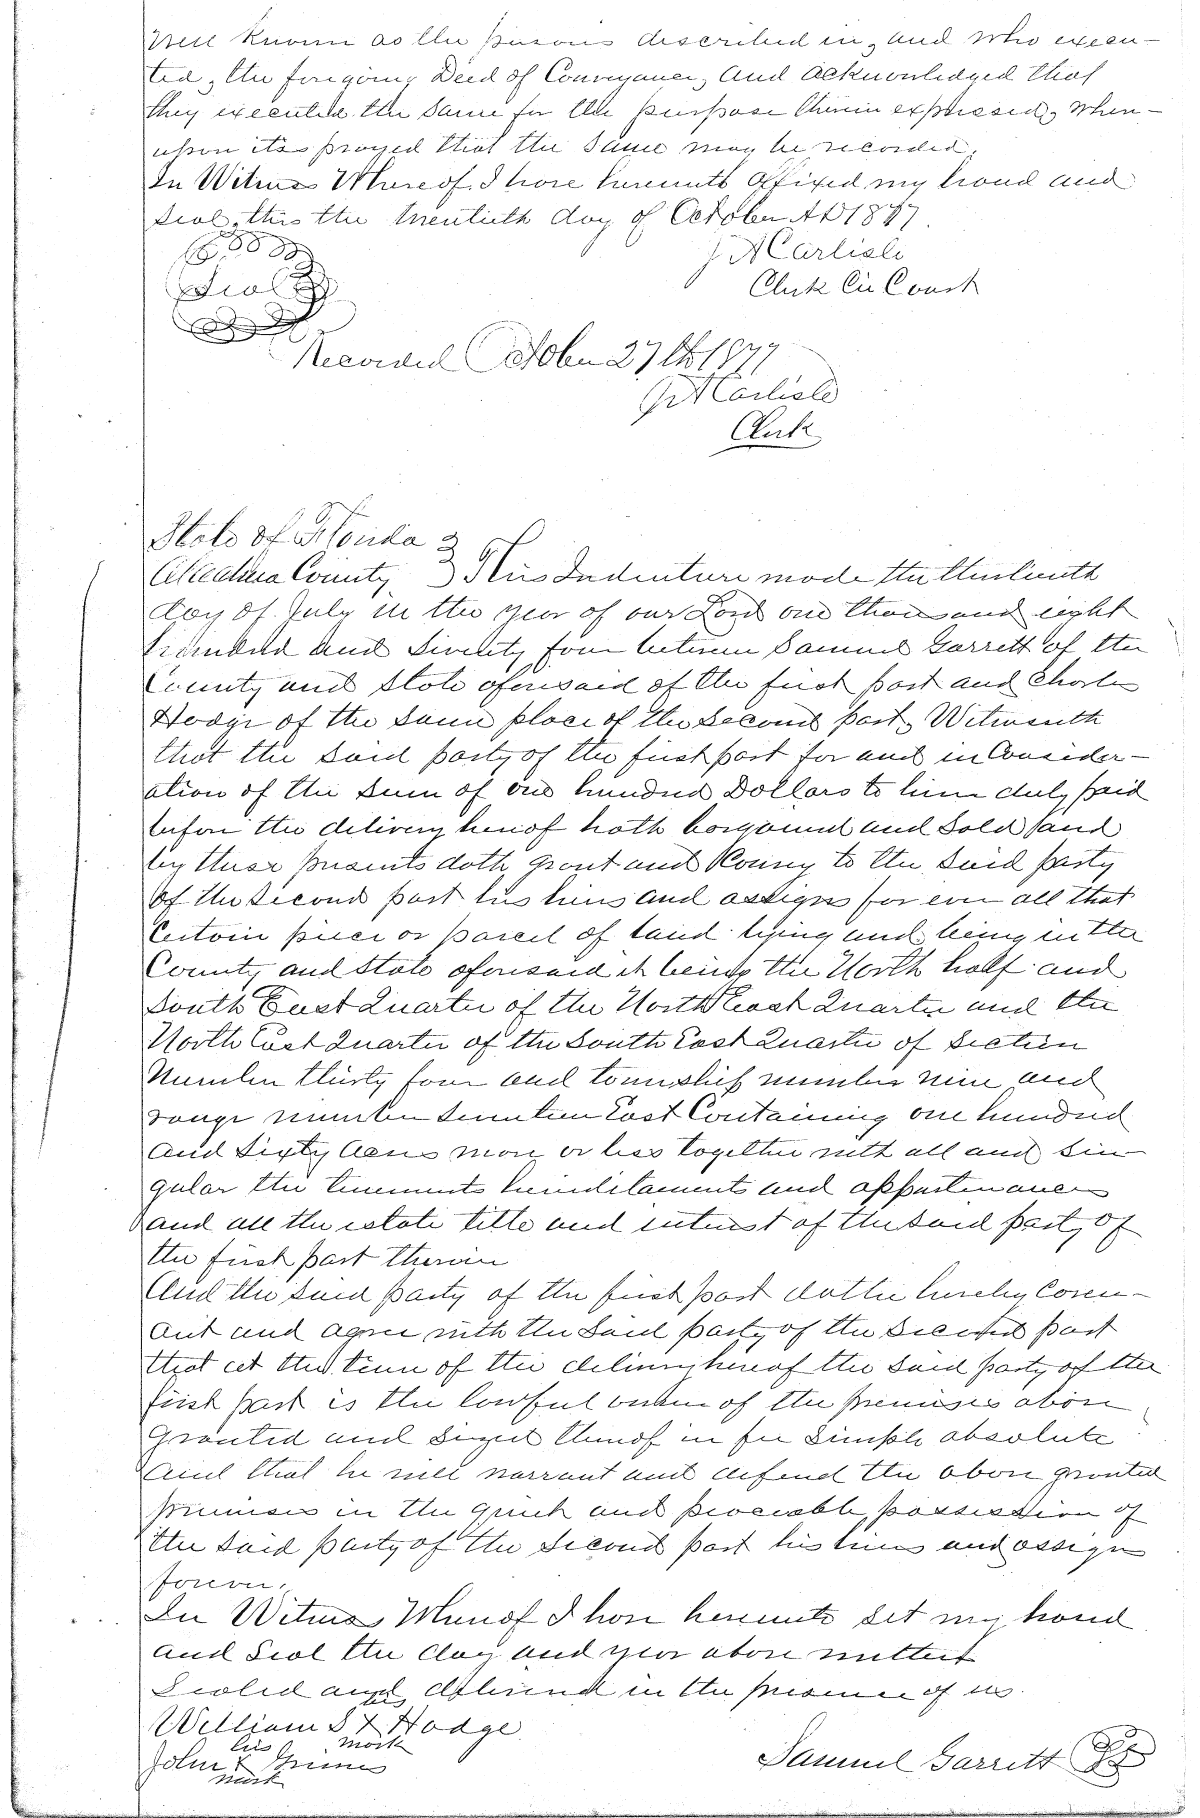 Well known as the persons described in, and who execu-
ted, the foregoing Deed of Conveyance, and acknowledged that
they executed the same for the purpose therein expressed, when-
upon its prayed that the same may be recorded.
In Witness Whereof I have hereunto affixed my hand and
seal, this the twentieth day of October AD 1877.
J A Carlisle
Clerk Cir Court
Seal
Recorded October 27th 1877
J A Carlisle
Clerk
State of Florida
Alachua County This Indenture made the thirteenth
day of July in the year of our Lord one thousand eight
hundred and seventy four between Samuel Garrett of the
County and State aforesaid of the first part and Charles
Hodge of the same place of the second part, Witnesseth
that the said party of the first part for and in Consider-
ation of the sum of one hundred Dollars to him duly paid
before the delivery hereof hath bargained and sold and
by these presents doth grant and Convey to the said party
of the second part his heirs and assigns for ever all that
Certain piece or parcel of land lying and being in the
County and State aforesaid it being the North half and
South East Quarter of the North East Quarter and the
North East Quarter of the South East Quarter of Section
Number thirty four and township number nine and
range number seventeen East Containing one hundred
and sixty acres more or less together with all and sin
gular the tenements hereditaments and appurtenances
and all the estate title and interest of the said party of
the first part therein
And the said party of the first part doth hereby Coven-
ant and agree with the said party of the second part
that at the time of the delivery hereof the said party of the
first part is the lawful owner of the premises above
granted and seized thereof in fee simple absolute
and that he will warrant and defend the above granted
premises in the quiet and peaceable possession of
the said party of the second part his heirs and assigns
forever.
In Witness Whereof I have hereunto set my hand
and seal the day and year above written
Sealed and delivered in the presence of us.
William S X Hodge
his mark
John X Grimes
mark
Samuel Garrett